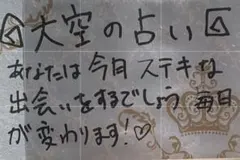 大空の占い
あなたは今日ステキな
出会いをするでしょう 毎日
が変わります!♡